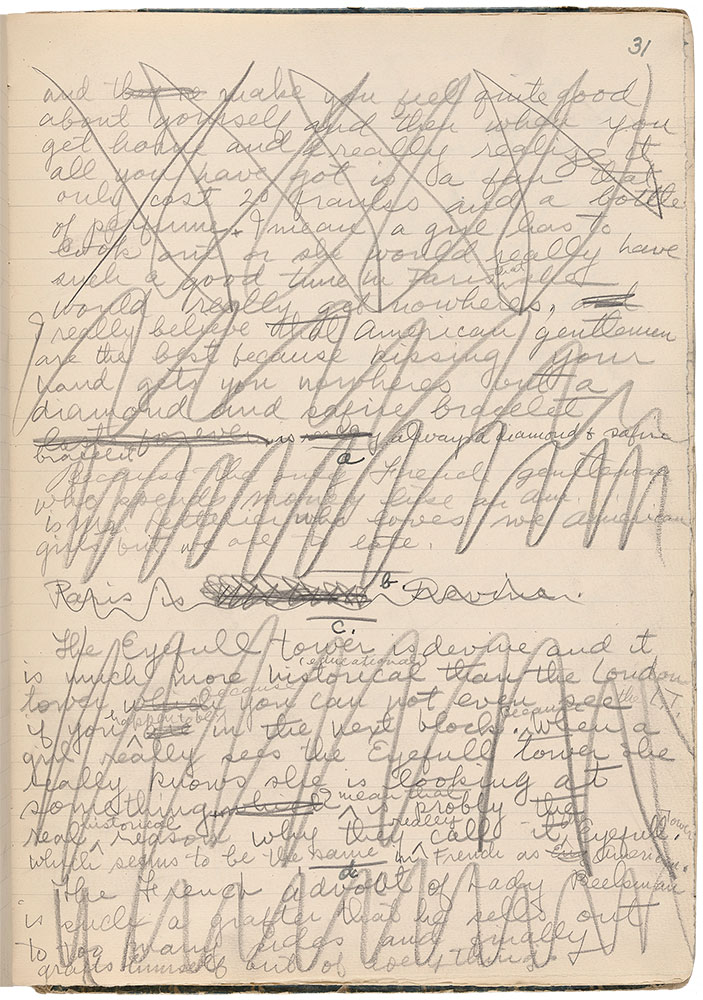 31
and make you feel quite good
about yourself and then when you
get home and really realize it
all you have got is a fan that
only cost 20 franks and a bottle
of perfume. I mean a girl has to
look out or she would really have
such a good time in Paris that she
would really get nowheres,
I really believe that American gentlemen
are the best because kissing your
hand gets you nowheres but a
diamond and safire bracelet
last forever is always a diamond + safire
bracelet
a
Because the only French gentleman
who spends money like an am.
is who loves we American
girls but we are to late.
b
Paris is Devine.
c.
The Eyefull tower is devine and it
is much more historical (educational) than the London
tower because you can not even see the L.T.
if you happen to be in the next block. because When a
girl really sees the Eyefull tower she
really knows she is looking at
something I mean that is probly the
real historical reason why they really call it Eyefull Tower.
which seems to be the same in French as American.
d
The French advocat of Lady Beelsman
is such a grafter that he sells out
to too many sides and finally
grafts himself out of everything.